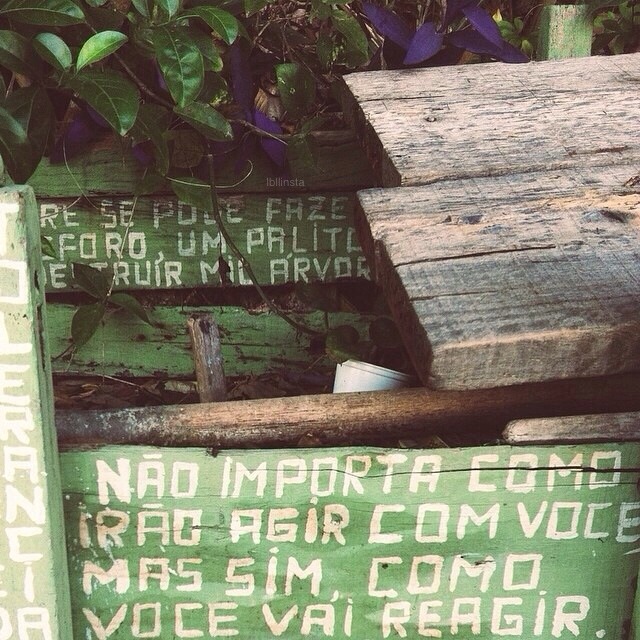 lbllinsta
RE SE PODE FAZE
FORO, UM PALITO
MIL ÁRVOR
NÃO IMPORTA COMO
IRÃO AGIR COM VOCE
MAS SIM, COMO
VOCE VAI REAGIR.